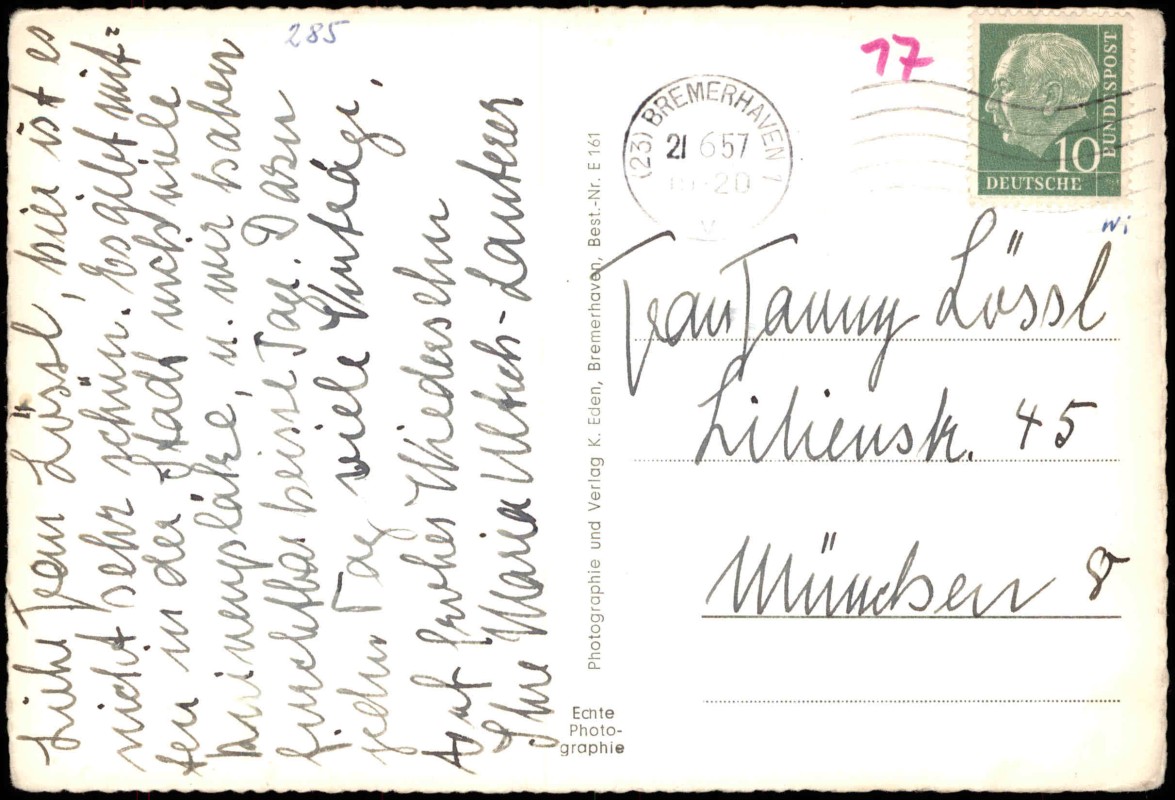 285
Liebe Frau Lössl, hier ist es
nicht sehr schön. Es gibt mit=
ten in der Stadt noch viele
Ruinenplätze, u. wir haben
furchtbar heisse Tage. Dazu
jeden Tag viele Einträge.
Auf frohes Wiedersehn
Ihre Maria Ulrich-Lauterer
Photographie und Verlag K. Eden, Bremerhaven, Best.-Nr. E 161
Echte
Photo-
graphie
17
(23) BREMERHAVEN 1
21 6 57
-20
v
10
DEUTSCHE
BUNDESPOST
Wi
Frau Fanny Lössl
Lilienstr. 45
München 8